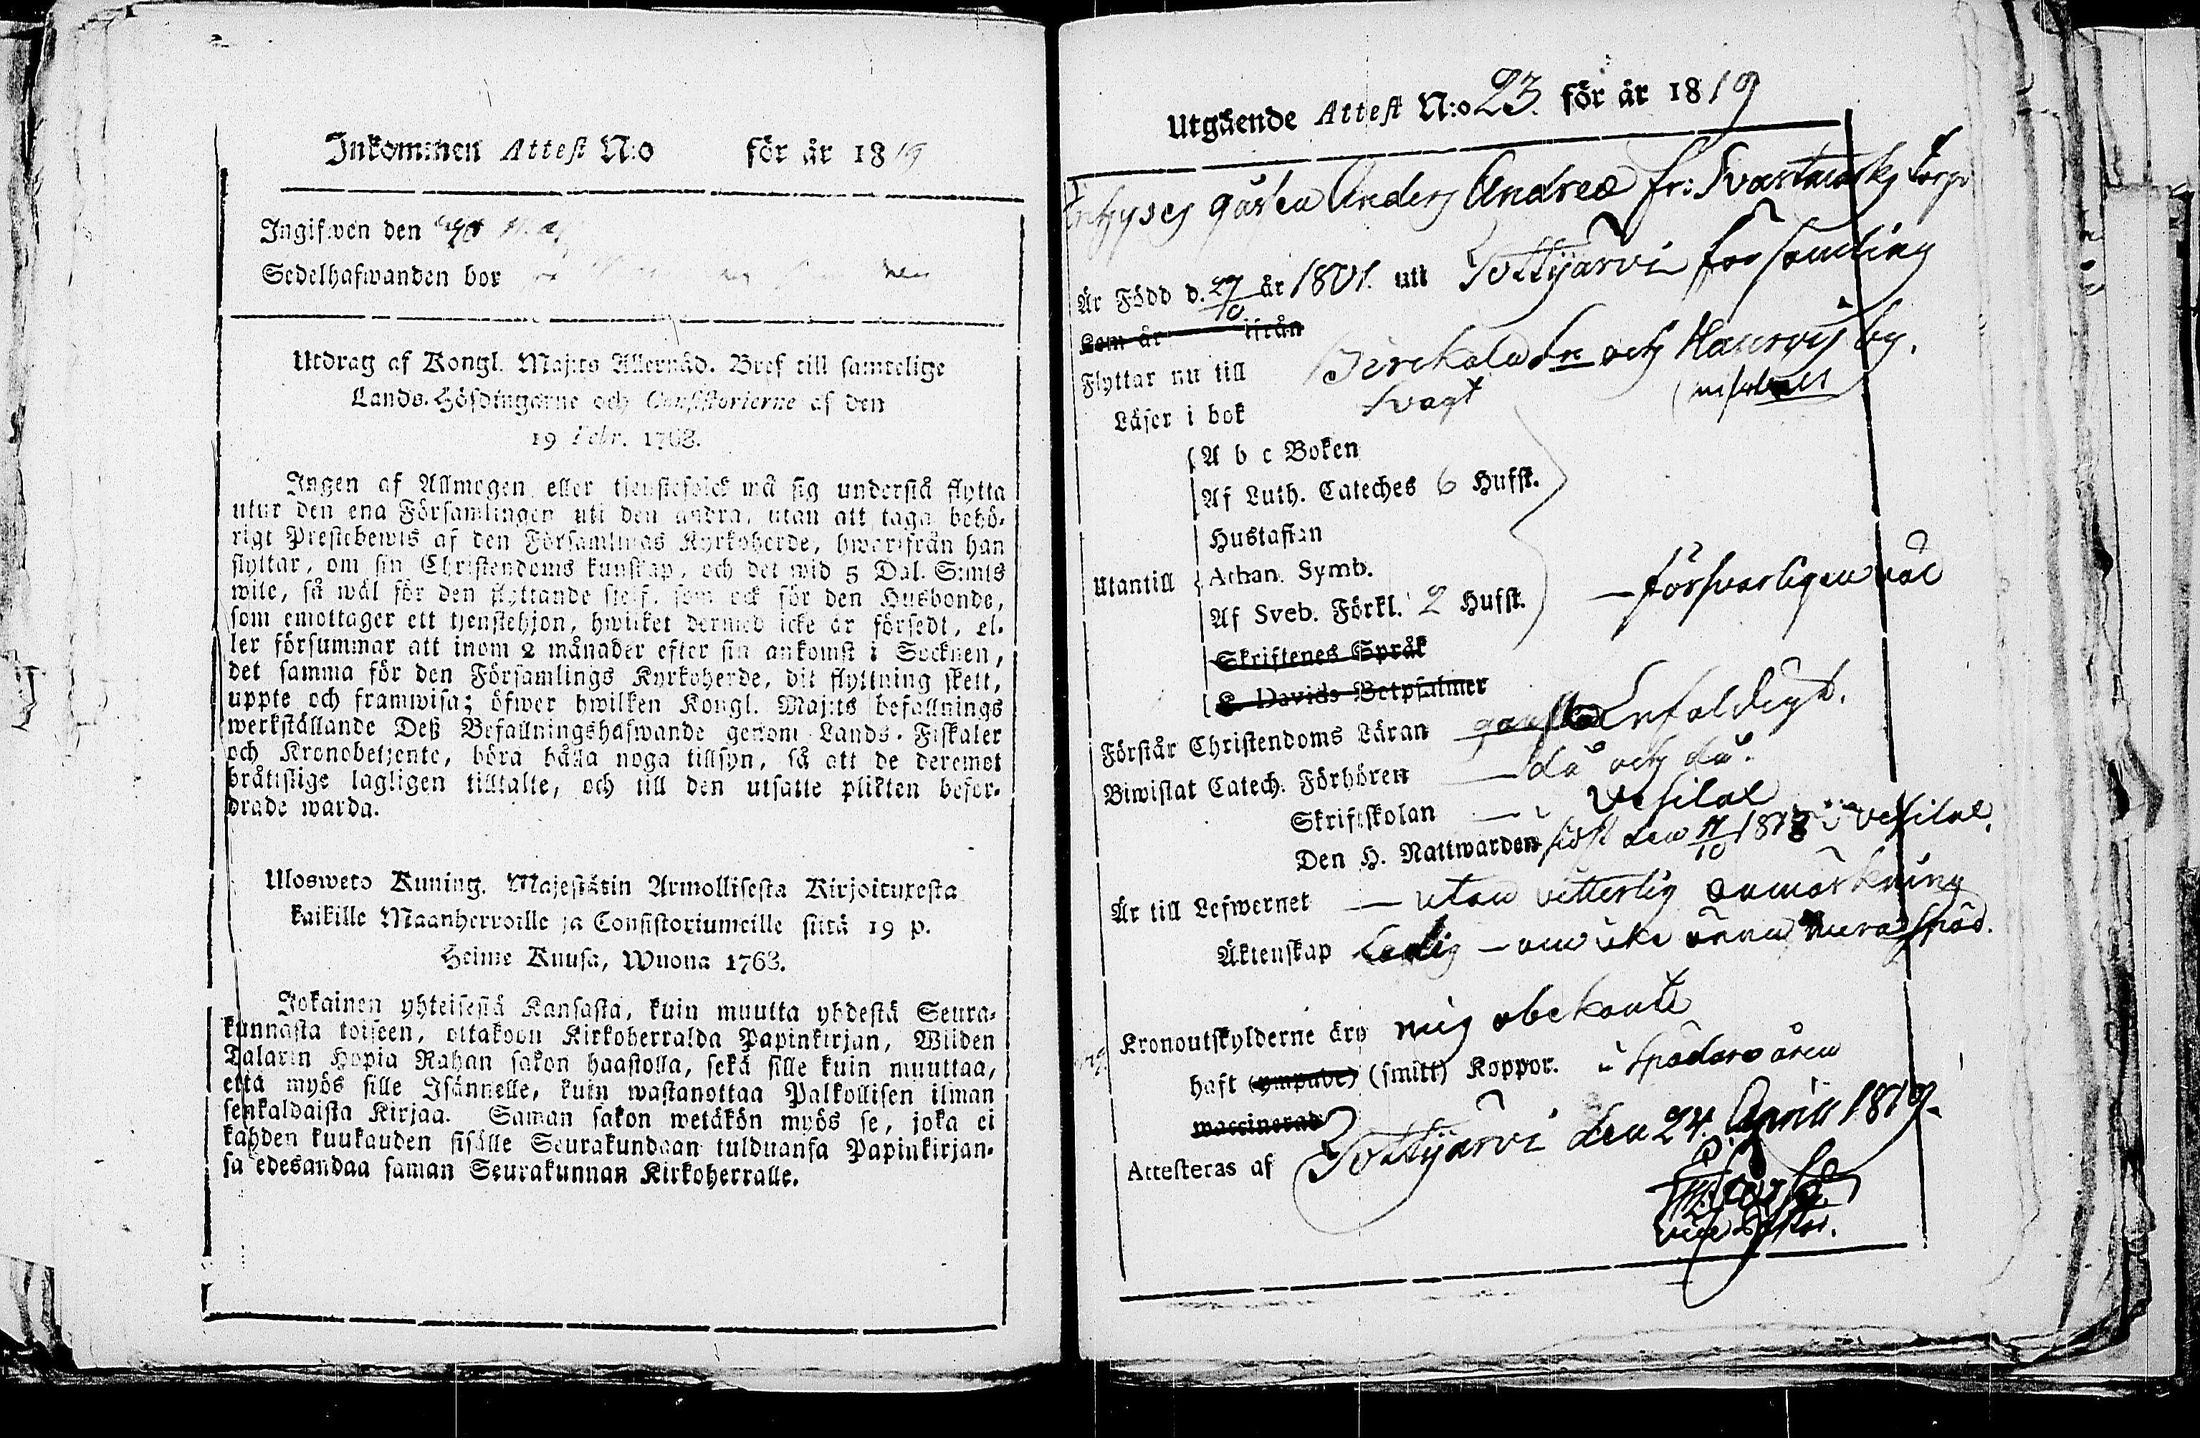 Inkommen Attest N:o för år 1819
Ingifwen den
Sedelhafwanden bor
Utdrag af Kongl. Maj:ts Allernåd. Bref till samtelige
Lands-Höfdingarne och Consistorierne af den
19 Febr. 1763.
Ingen af Allmogen eller tjenstefolck må sig understå flytta
utur den ena Församlingen uti den andra, utan att taga behö-
rigt Prestebewis af den Församlings Kyrkoherde, hwarifrån han
flyttar, om sin Christendoms kunskap, och det wid 5 Dal. S:mts
wite, så wäl för den flyttande sielf, som ock för den Husbonde,
som emottager ett tjenstehjon, hwilket dermed icke är försedt, el-
ler försummar att inom 2 månader efter sin ankomst i Socknen,
det samma för den Församlings Kyrkoherde, dit flyttning skett,
uppte och framwisa; öfwer hwilken Kongl. Maj:ts befallnings
werkställande Deß Befallningshafwande genom Lands-Fiskaler
och Kronobetjente, böra hålla noga tillsyn, så att de deremot
bråttslige lagligen tilltalte, och till den utsatte plikten befor-
drade warda.
Ulosweto Kuning. Majestätin Armollisesta Kirjoituxesta
kaikille Maanherroille ja Consistoriumeille siitä 19 p.
Helme Kuusa, Wuona 1763.
Jokainen yhteisestä Kansasta, kuin muutta yhdestä Seura-
kunnasta toiseen, ottakoon Kirkoherralda Papinkirjan, Wiiden
Talarin Hopia Rahan sakon haastolla, sekä sille kuin muuttaa,
että myös sille Isännelle, kuin wastanottaa Palkollisen ilman
senkaldaista Kirjaa. Saman sakon wetäkön myös se, joka ei
kahden kuukauden sisälle Seurakundaan tulduansa Papinkirjan-
sa edesandaa saman Seurakunnan Kirkoherralle.
Utgående Attest N:o 23. för år 1819
gåsten Anders Andreæ fr: Torp
Är Född d. 27/10 år 1801. uti Tottijärvi församling
Kom år ifrån
Flyttar nu till Birckala Sn och by.
Läser i bok Svagt
A b c Boken
Af Luth. Cateches 6 Hufst.
Hustaflan
Utantill Athan. Symb. försvarligen väl
Af Sveb. Förkl. 2 Hufst.
Skriftenes Språk
K. Davids Botpsalmer
Förstår Christendoms Läran ganska Enfaldigt.
Biwistat Catech. Förhören då och då.
Skriftskolan i Vesilax
Den H. Nattwarden sidst den 1818 i Vesilax.
Är till Lefwernet utan vetterlig anmärkning
Äktenskap Ledig
Kronoutskylderne äro mig obekante
haft (ympade) (smitt) Koppor. i Spädare åren
waccinerad
Attesteras af Tottijärvi den 24. April 1819.
vice Pastor.